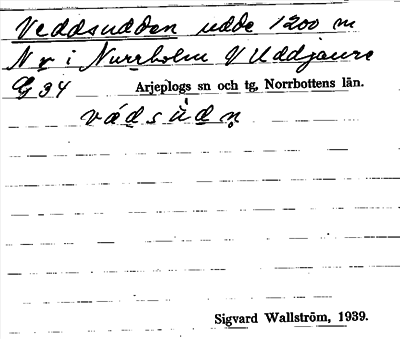 Veddsudden udde 1200 m
N r i Nurrholm V Uddjaure
G 34 Arjeplogs sn och tg, Norrbottens län.
vádsùdn̥
Sigvard Wallström, 1939.